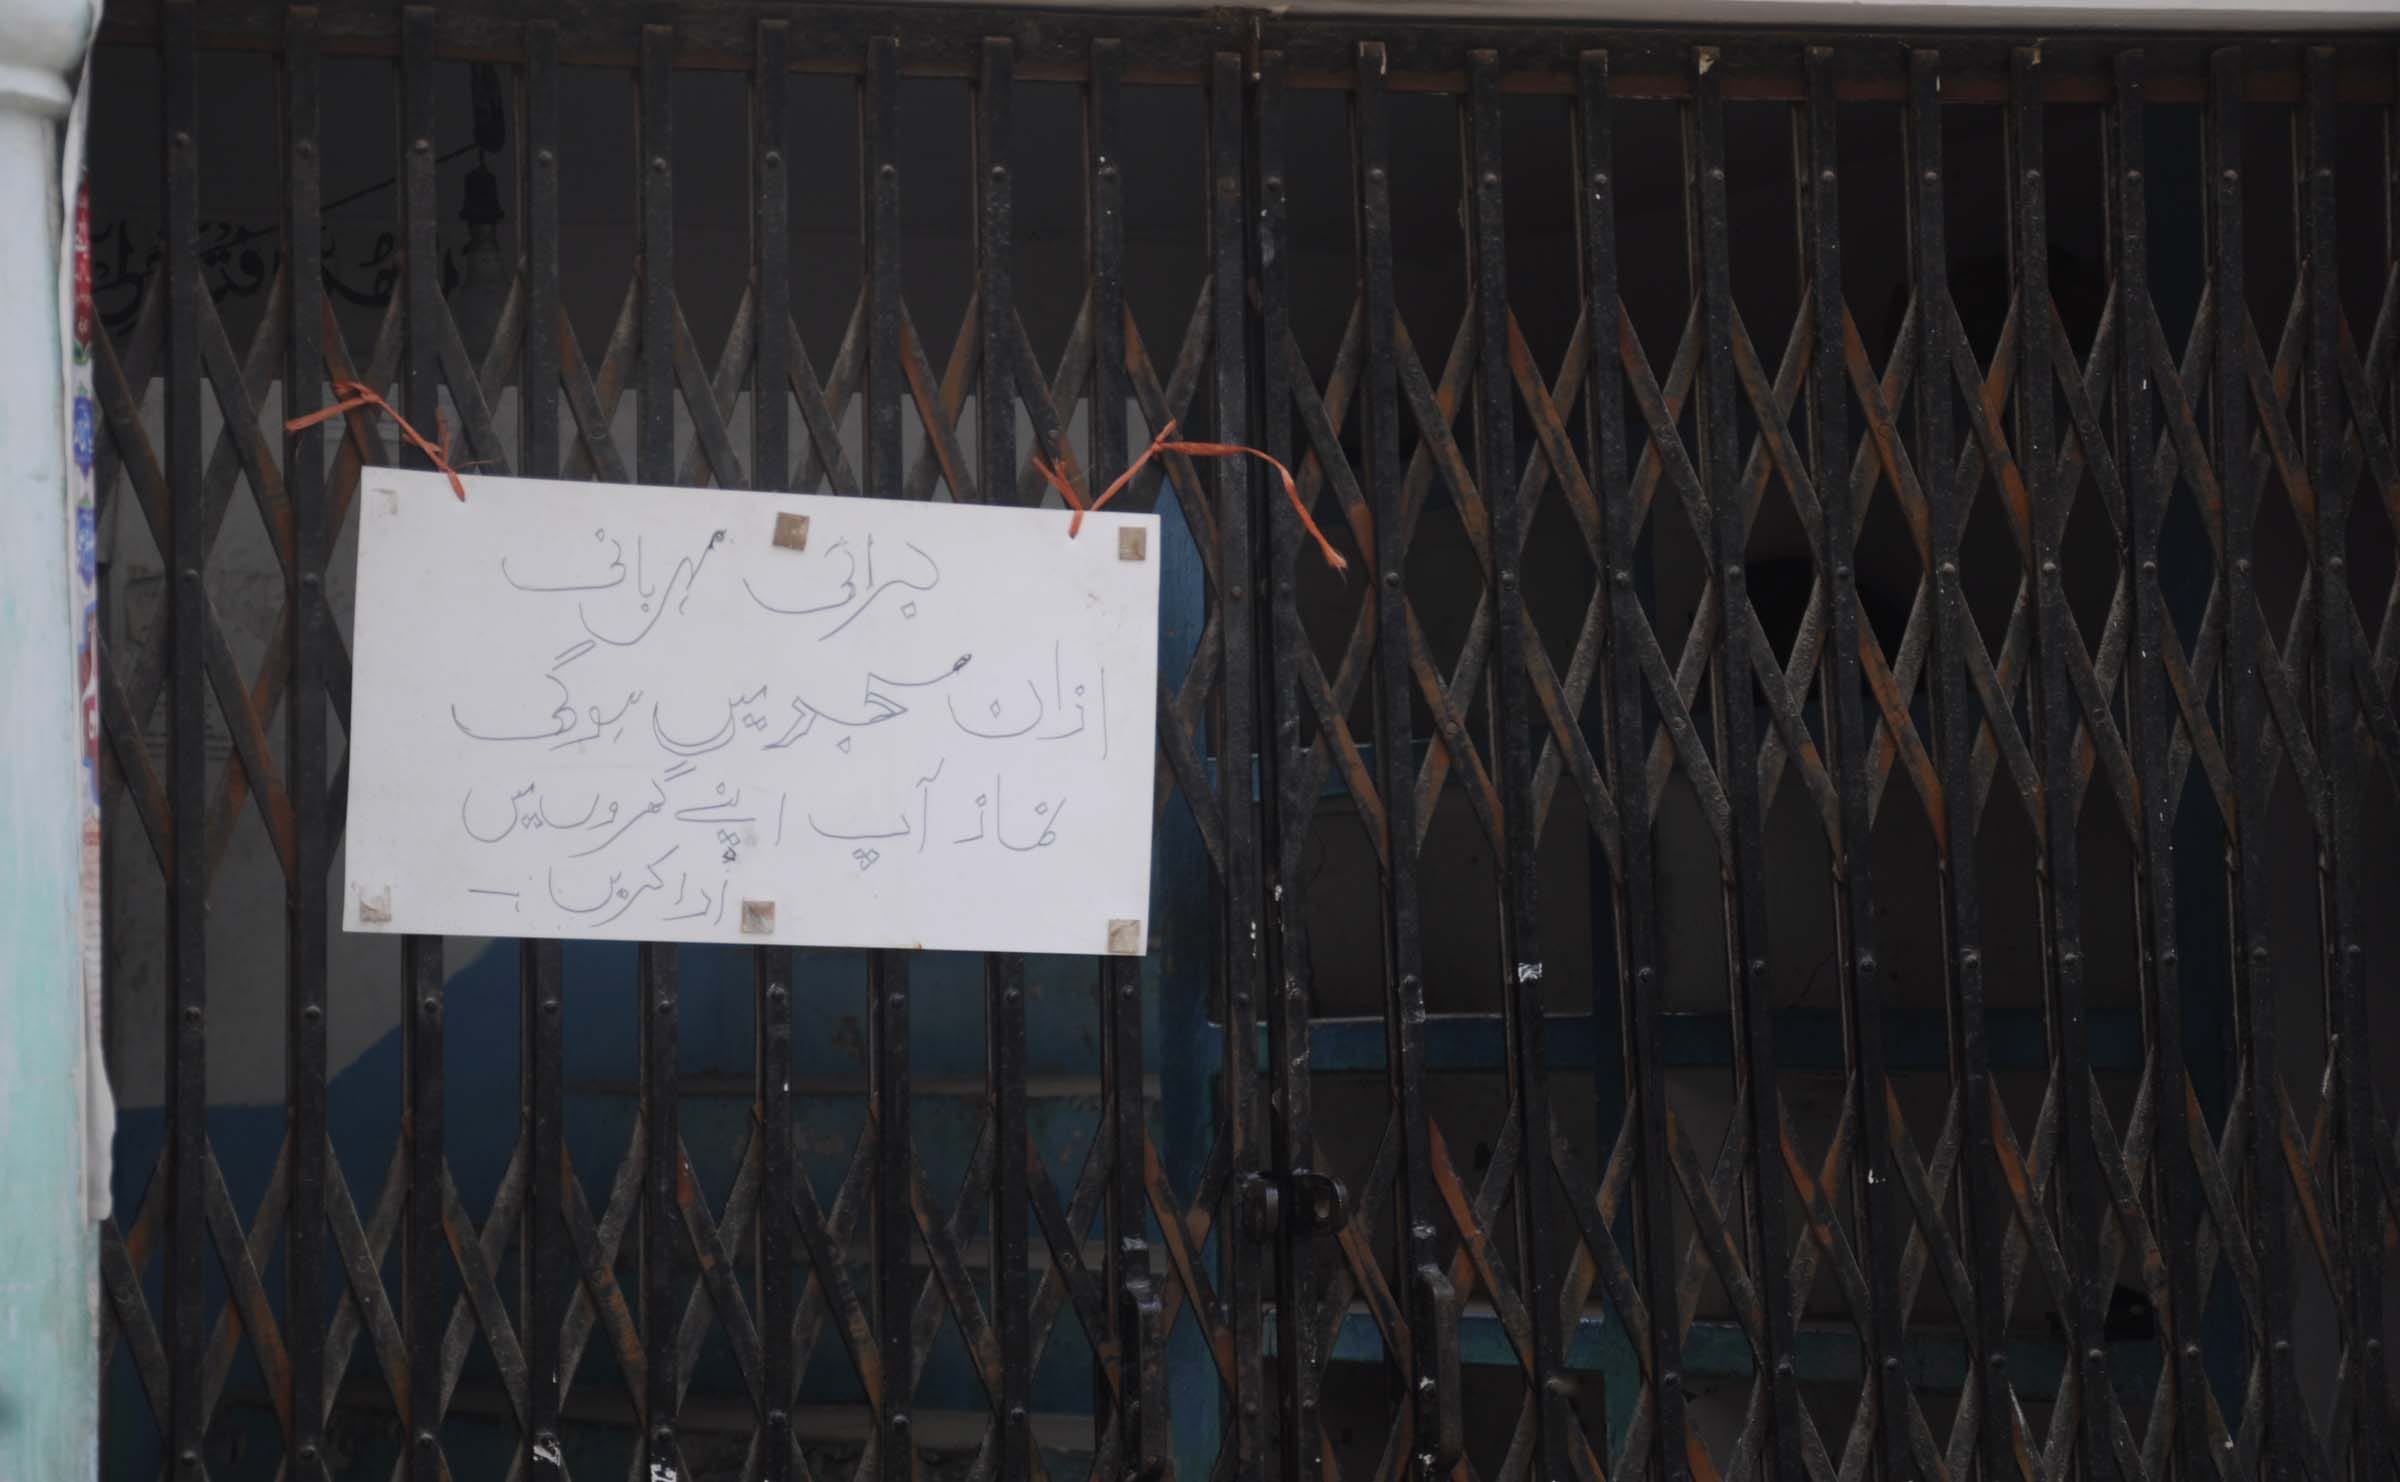 برائی مہربانی
اذان مسجد میں ہوگی
نماذ آپ اپنے گھروں میں
ادا کریں